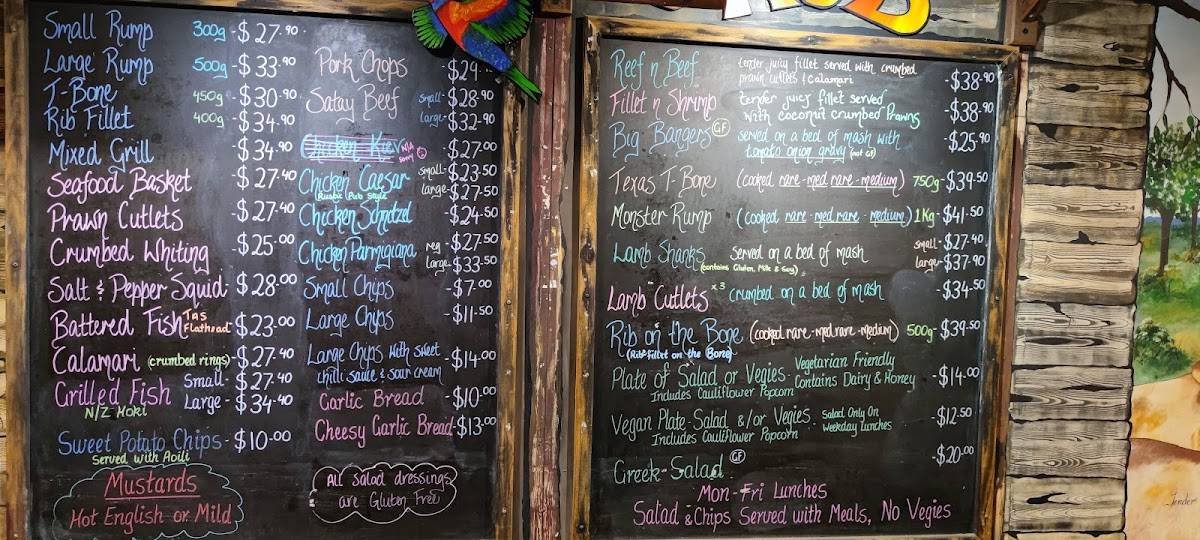 Small Rump 300g -$27.90
Large Rump 500g -$33.90
T-Bone 450g -$30.90
Rib Fillet 400g -$34.90
Mixed Grill -$34.90
Seafood Basket -$27.40
Prawn Cutlets -$27.40
Crumbed Whiting -$25.00
Salt & Pepper Squid -$28.00
Battered Fish Tas Flathead -$23.00
Calamari (crumbed rings) -$27.40
Grilled Fish Small -$27.40
N/Z Hoki Large -$34.40
Sweet Potato Chips -$10.00
Served with Aoili
Mustards
Hot English or Mild
Pork Chops
Satay Beef small -$28.90
large -$32.90
Chicken Kiev N/A Sorry -$27.00
Chicken Caesar small -$23.50
(Rustic Pub Style) large -$27.50
Chicken Schnitzel -$24.50
Chicken Parmigiana reg -$27.50
Large -$33.50
Small Chips -$7.00
Large Chips -$11.50
Large Chips with Sweet
chilli sauce & sour cream -$14.00
Garlic Bread -$10.00
Cheesy Garlic Bread -$13.00
All salad dressings
are Gluten Free
Reef n Beef tender juicy fillet served with crumbed
prawn cutlets & Calamari -$38.90
Fillet n Shrimp tender juicy fillet served
with coconut crumbed Prawns -$38.90
Big Bangers GF served on a bed of mash with
tomato onion gravy (not GF) -$25.90
Texas T-Bone (cooked rare-med rare-medium) 750g -$39.50
Monster Rump (cooked rare-med rare-medium) 1Kg -$41.50
Lamb Shanks served on a bed of mash small -$27.40
(contains Gluten, Milk & Soy) large -$37.90
Lamb Cutlets x3 crumbed on a bed of mash -$34.50
Rib on the Bone (cooked rare-med rare-medium) 500g -$39.50
(Rib fillet on the Bone)
Plate of Salad or Vegies - Vegetarian Friendly
Includes Cauliflower Popcorn Contains Dairy & Honey -$14.00
Vegan Plate-Salad &/or Vegies - Salad Only On
Includes Cauliflower Popcorn Weekday Lunches -$12.50
Greek-Salad GF -$20.00
Mon-Fri Lunches
Salad & Chips Served with Meals, No Vegies